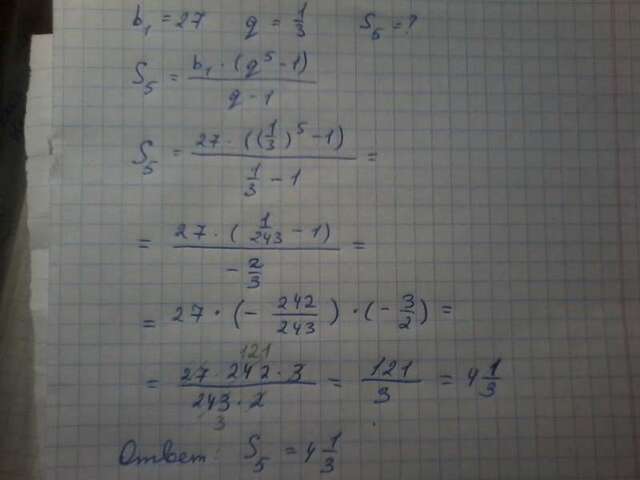 b₁ = 27 q = 1/3 S₅ = ?
S₅ = b₁ · (q⁵ - 1) / q - 1
S₅ = 27 · ((1/3)⁵ - 1) / 1/3 - 1 =
= 27 · (1/243 - 1) / - 2/3 =
= 27 · (- 242/243) · (- 3/2) =
121
= 27 · 242 · 3 / 243 · 2 = 121/3 = 4 1/3
3
Ответ: S₅ = 4 1/3